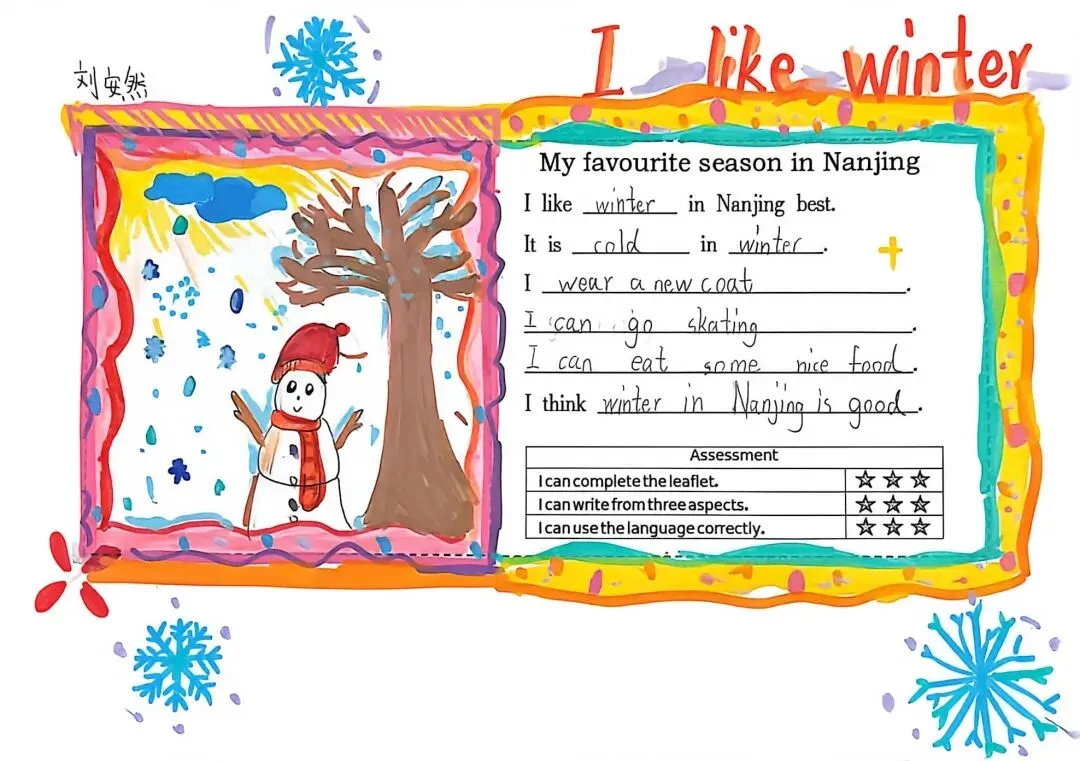 刘安然
I like winter
My favourite season in Nanjing
I like winter in Nanjing best.
It is cold in winter.
I wear a new coat.
I can go skating.
I can eat some nice food.
I think winter in Nanjing is good.
Assessment
I can complete the leaflet. ☆☆☆
I can write from three aspects. ☆☆☆
I can use the language correctly. ☆☆☆